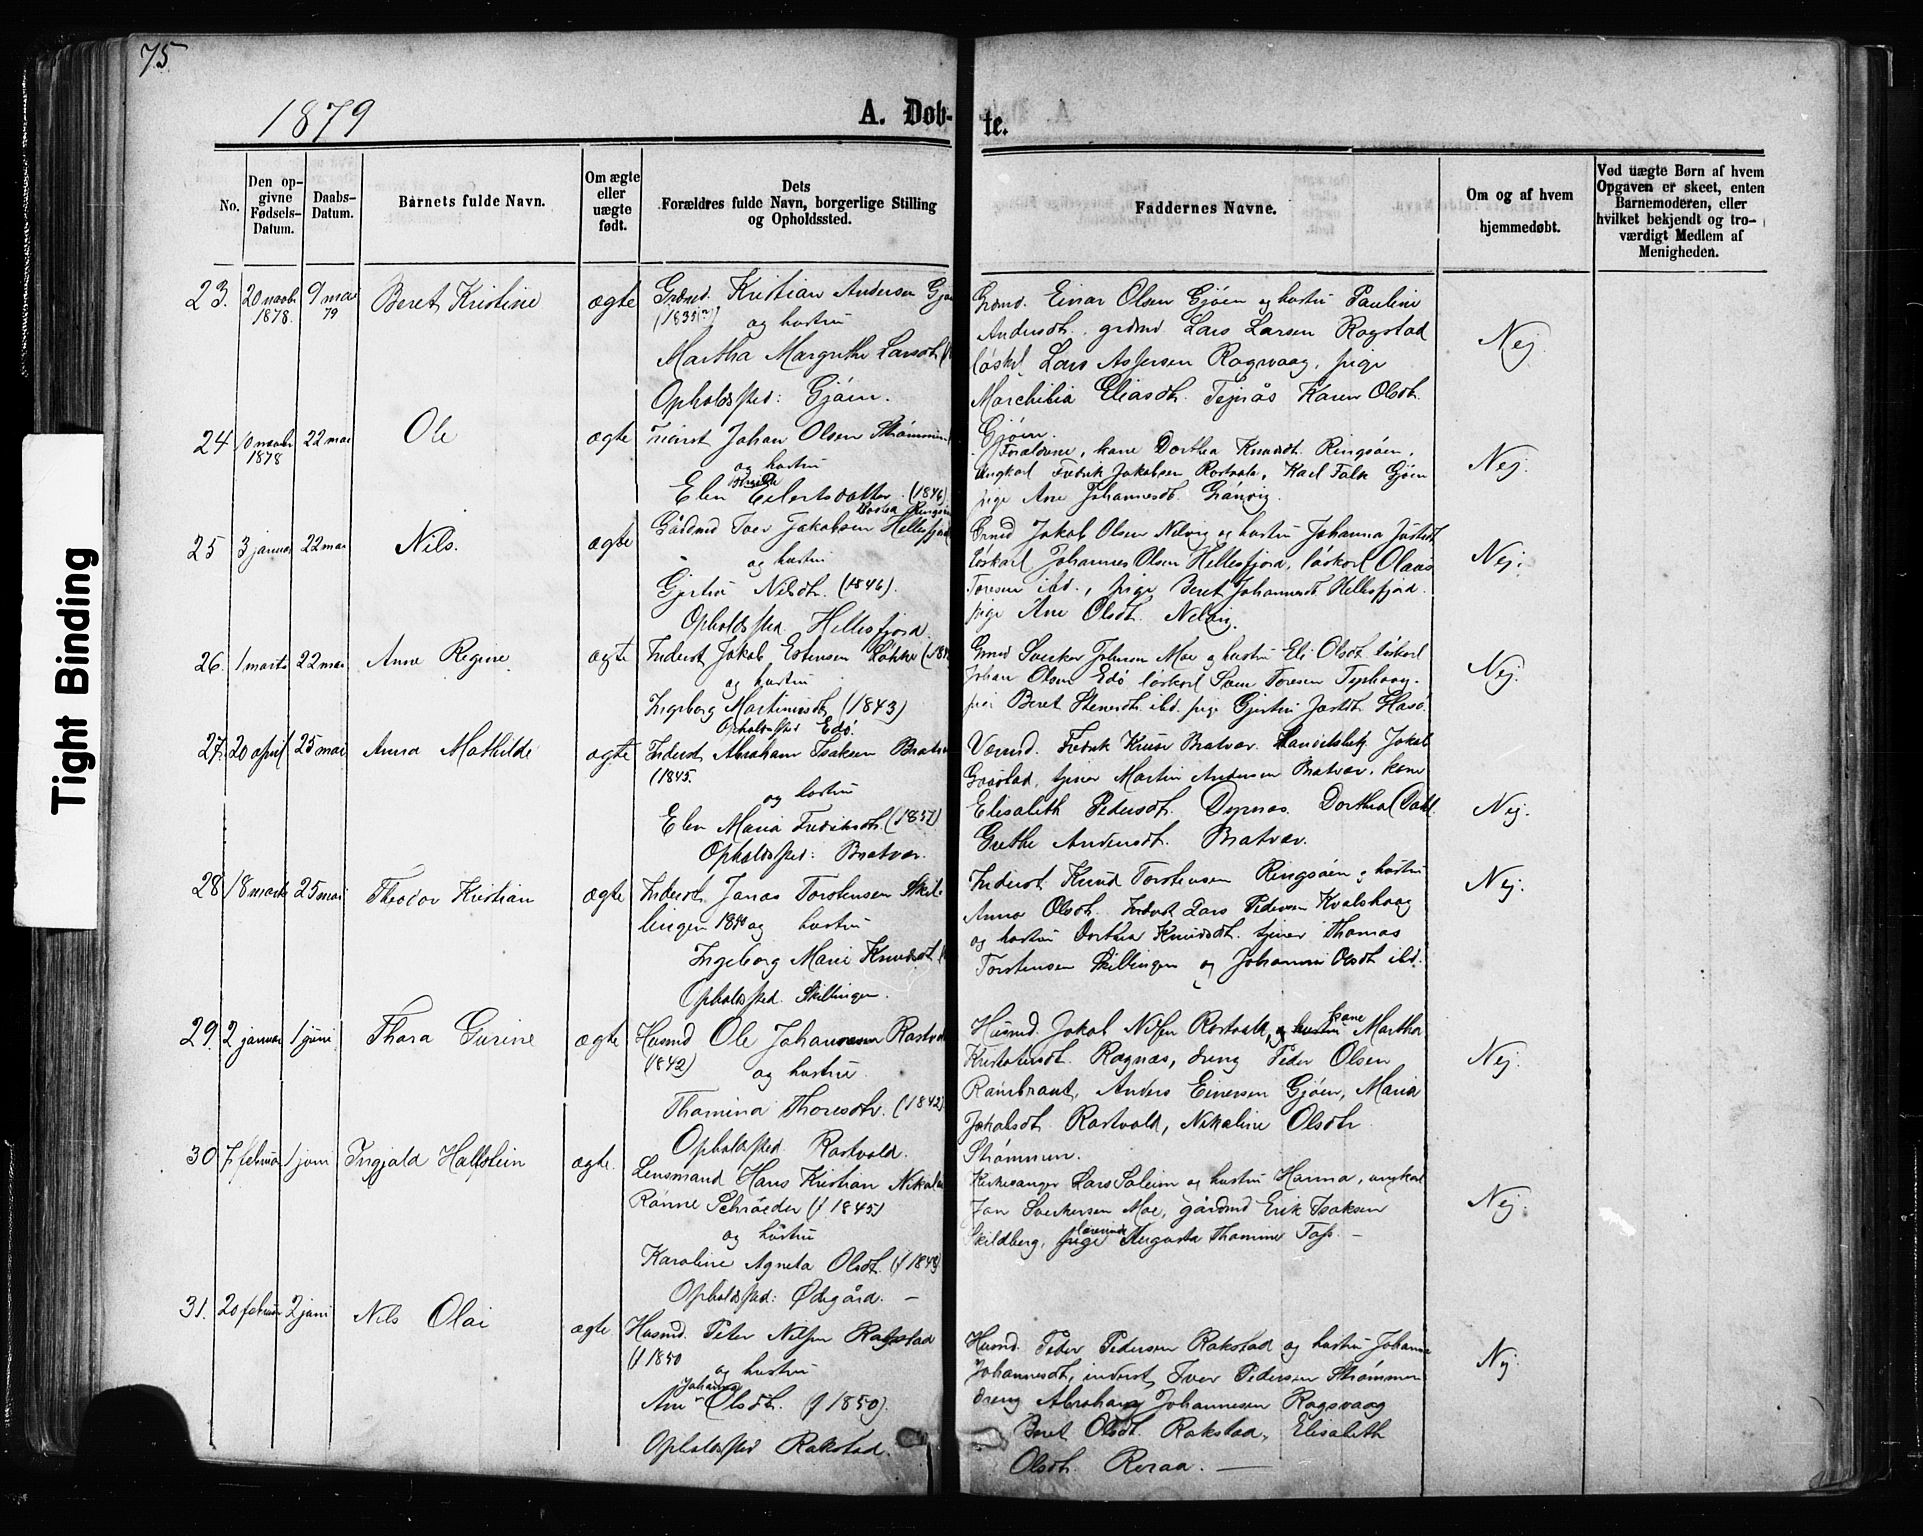 75
1879
A. Døb-
te.
No.
Den op-
givne
Fødsels-
Datum.
Daabs-
Datum.
Barnets fulde Navn.
Om ægte
eller
uægte
født.
Dets
Forældres fulde Navn, borgerlige Stilling
og Opholdssted.
Faddernes Navne.
Om og af hvem
hjemmedøbt.
Ved uægte Børn af hvem
Opgaven er skeet, enten
Barnemoderen, eller
hvilket bekjendt og tro-
værdigt Medlem af
Menigheden.
23. 20 novbr 1878. 9 mai 79 Beret Kristine ægte
Grdmd. Kristian Andersen
og hustru
Martha Margrethe Larsdt.
Opholdssted: Gjöen.
Grdmd. Einar Olsen Gjöen og hustru Pauline
Andersdt. grdmd. Lars Larsen Rogstad
löskl. Lars Assersen Rogsvaag, pige
Eliasdt. Karen Olsdt.
Gjöen.
Nej.
24 10 novbr 1878 22 mai Ole ægte
Inderst Johan Olsen
og hustru
Elen Eilertsdatter. (1846)
Forældrene, kone Dorthea Knudsdt. Ringsöen,
ungkarl Fredrik Jakobsen Rostvold, Karl Falk Gjöen
pige Ane Johannesdt.
Nej.
25 3 januar 22 mai Nils. ægte
Gårdmd Tore Jakobsen Hellesfjord
og hustru
Nilsdt. (1846).
Opholdssted. Hellesfjord.
Grmd Jakob Olsen Nelvig og hustru Johanna
löskarl Johannes Olsen Hellesfjord, löskarl Olaus
Toresen ibd., pige Beret Johannesdt Hellesfjord.
pige Ane Olsdt. Nelvig.
Nej.
26. 1 marts 22 mai Anne Regine ægte
Inderst Jakob Estensen
og hustru
Ingeborg Martinusdt. (1843)
Opholdssted Edö.
Grmd Sverker Johnsen Moe og hustru Eli Olsdt. löskarl
Johan Olsen Edö löskarl Toresen
pige Beret Stenersdt. ibd. pige
Nej.
27. 20 april 25 mai Anna Mathilde ægte
Inderst Abraham Isaksen
(1845.
og hustru
Elen Maria Fredriksdt. (1851)
Opholdssted: Bratvær.
Fredrik Knusr Bratvær. Jakob
tjener Martin Andersen Bratvær, kone
Elisabeth Pedersdt. Dyrnæs. Dorthea Dahl.
Grethe Andersdt. Bratvær.
Nej.
28 18 marts 25 mai Theodor Kristian ægte
Inderst Jonas Torstensen Skil-
lingen og hustru
Ingeborg Marie Knudsdt.
Opholdssted. Skillingen.
Inderst. Knud Torstensen Ringsöen og hustru
Anna Olsdt. Inderst Lars Pedersen Kvalshaag
og hustru Dorthea Knudsdt. tjener Thomas
Torstensen Skillingen og Johanna Olsdt ibd.
Nej.
29. 2 januar 1 juni Thora Gurine ægte
Husmd Ole Johannesen
(1842)
og hustru.
Thamina Thoresdt. (1842)
Opholdssted. Rostvold.
Husmd. Jakob Nilsen Rostvold, kone Martha
Ragnæs, dreng Peder Olsen
Anders Einersen Gjöen, Maria
Jakobsdt. Rostvold, Nikoline Olsdt.
Strömmen.
Nej.
30 7 februar 1 juni Ingjald Hallstein ægte.
Lensmand Hans Kristian
Rönne Schröeder (f 1845)
og hustru
Karoline Agneta Olsdt. (f 1849)
Opholdssted: Ödegård. –
Kirkesanger Lars Solem og hustru Hanna, ungkarl
Jon Sverkersen Moe, gårdmd Erik Isaksen
Skildberg, lærerinde Augusta Thomine –
Nej.
31. 20 februar 2 juni Nils Olai ægte
Husmd. Peter Nilsen
(f 1850
og hustru
Ane Johanna Olsdt. (f 1850).
Opholdssted Rakstad.
Husmd. Peder Pedersen Rakstad og hustru Johanna
Johannesdt, inderst, Iver Pedersen Strömmen
dreng Abraham Johannesen Rogsvaag
Beret Olsdt. Rakstad, Elisabeth
Olsdt. Reraa. –
Nej.
Tight Binding